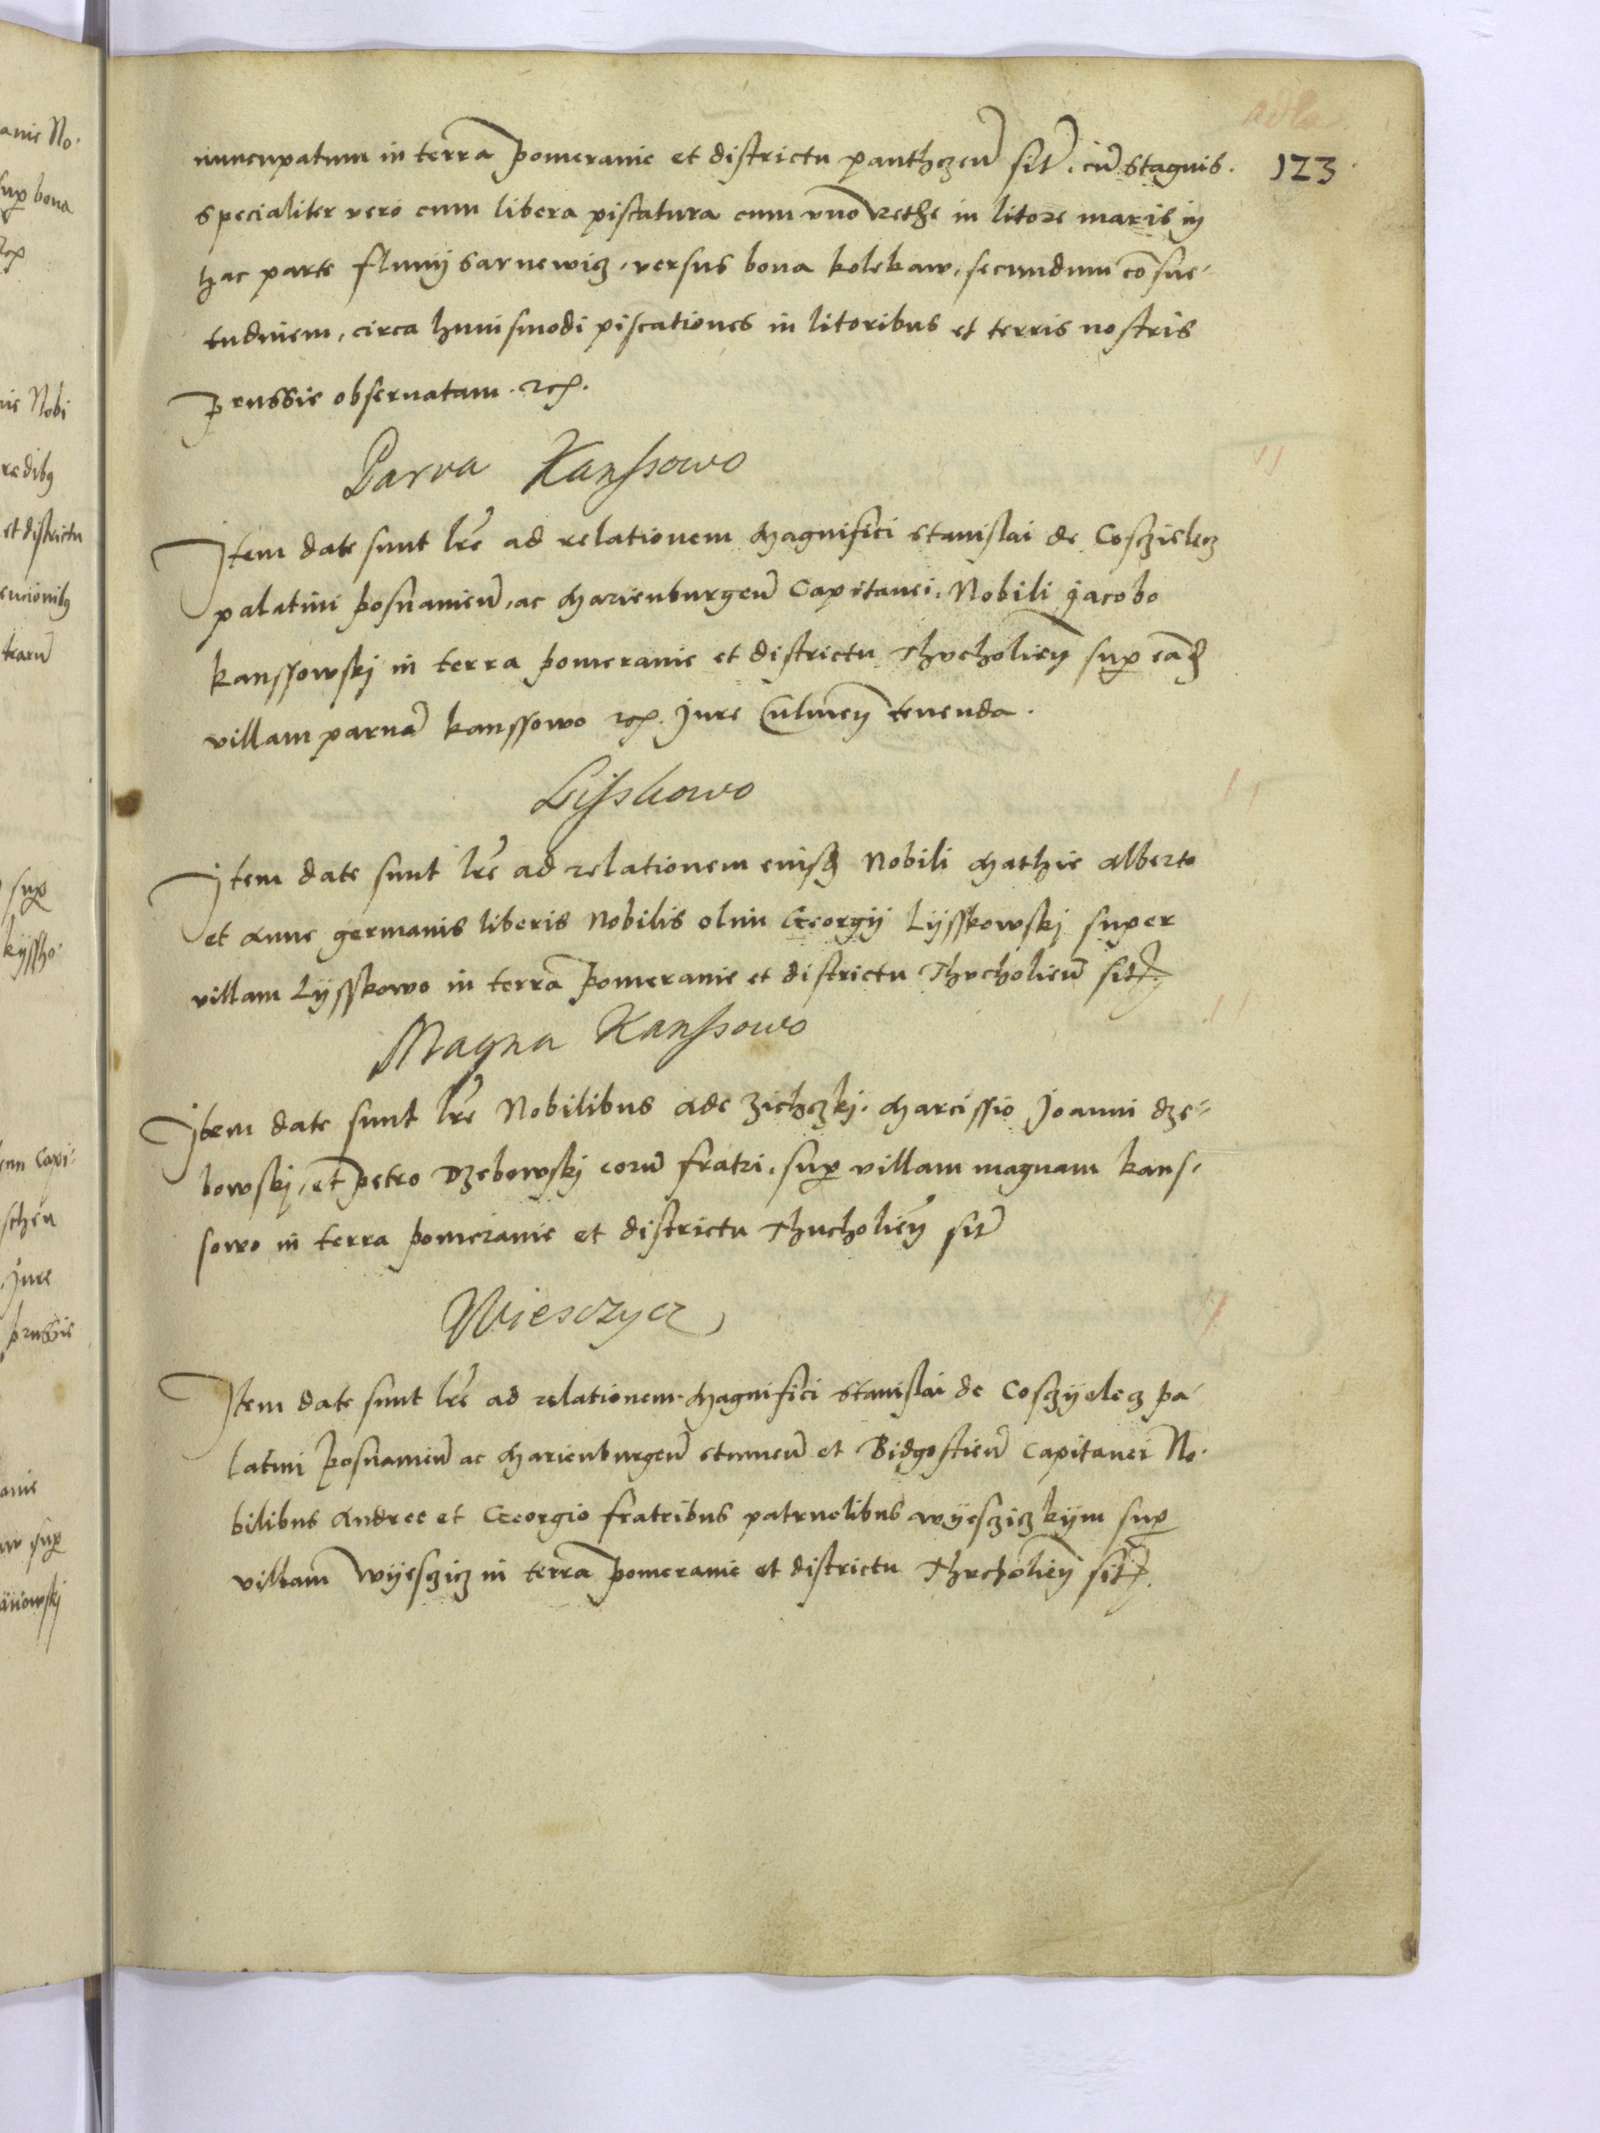 123
nuncupatum in terra pomeranie et districtu panthczen̄ sit̄. cū stagnis.
specialiter vero cum libera piscatura cum vno rethe in litore maris in
hac parte fluuij sarnewicz, versus bona kolekaw, secundum cōsue-
tudinem, circa huiusmodi piscationes in litoribus et terris nostris
prussie obseruatam. etc.
Parva Kanssowo
Item date sunt lr̄e ad relationem Magnifici Stanislai de Cosczielecz
palatini posnanien̄, ac Marienburgen̄ Capitanei. Nobili Jacobo
kanssowskj in terra pomeranie et districtu Thvcholien̄ sup eād̄
villam paruā kanssowo etc. jure Culmen̄ tenenda.
Lisskowo
Item date sunt lr̄e ad relationem eiusd̄ Nobili Mathie Alberto
et Anne germanis liberis Nobilis olim Georgij Lijsskowskj super
villam Lijsskowo in terra pomeranie et districtu Thvcholien̄ sit̄
Magna Kanssowo
Item date sunt lr̄e Nobilibus Ade Zichczkj. Marcissio Joanni dze-
bowskj, et petro Dzebowskj eorū fratri. sup villam magnam kans-
sowo in terra pomeranie et districtu Thucholien̄ sit̄
Wiesczycz
Item date sunt lr̄e ad relationem Magnifici Stanislai de Cosczijelecz pa-
latini posnanien̄ ac Marienburgen̄ stumen̄ et Bidgostien̄ Capitanei No-
bilibus Andree et Georgio fratribus patruelibus wijesczickijm sup
villam Wijesczicz in terra pomeranie et districtu Thvcholien̄ sit̄